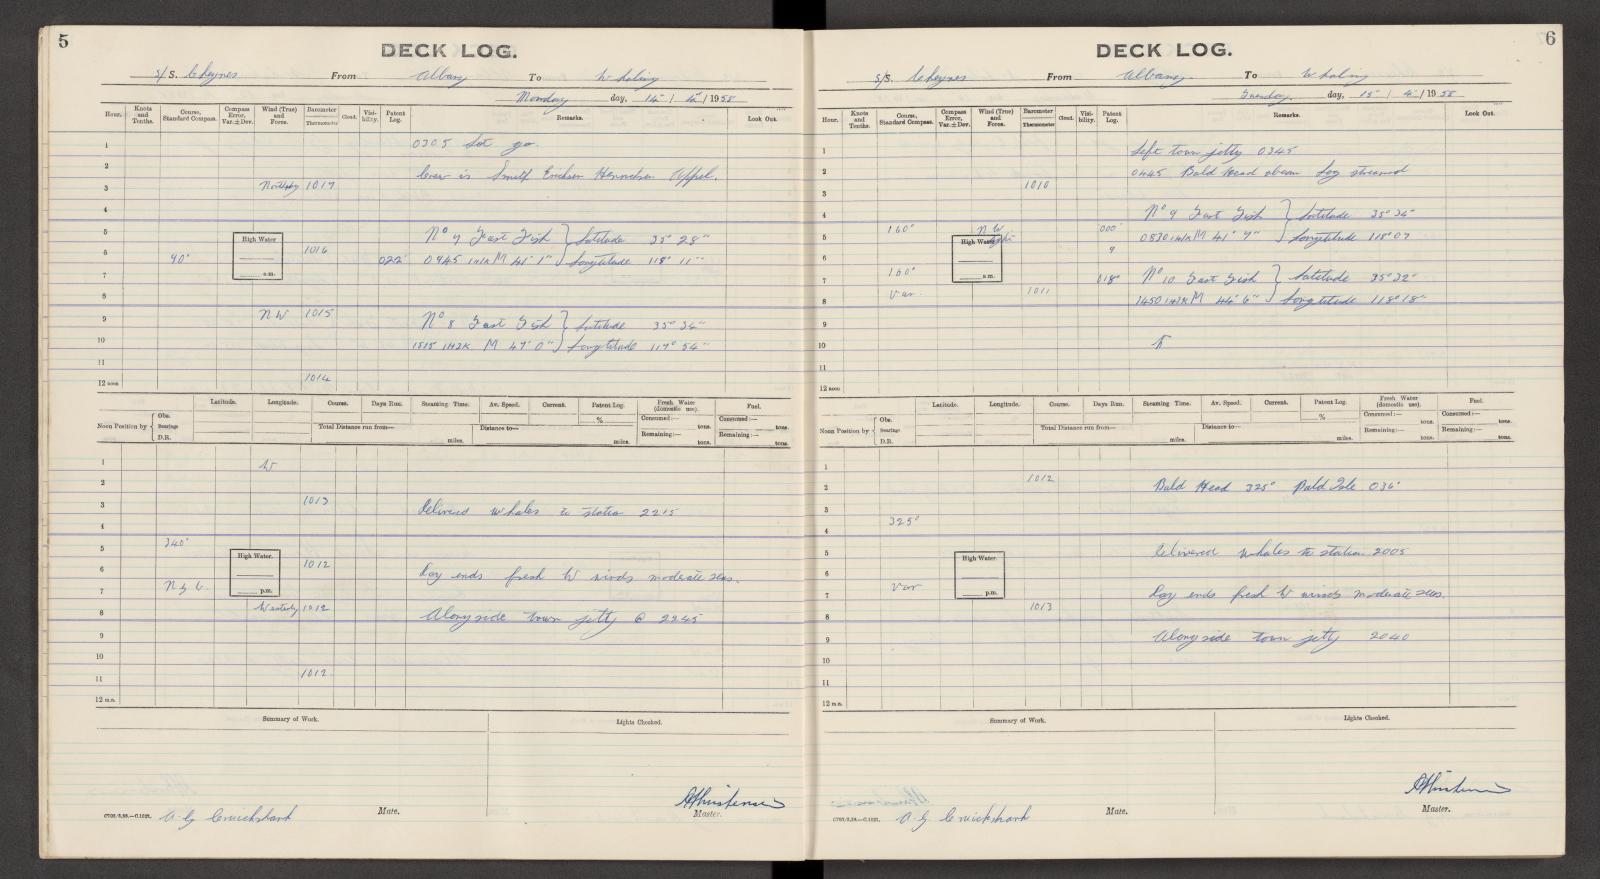 5
DECK LOG.
S/S. Cheynes From Albany To Whaling
Monday day, 14th / 4th / 1958
Hour. Knots and Tenths. Course, Standard Compass. Compass Error, Var.±Dev. Wind (True) and Force. Barometer Thermometer Cloud. Visi-bility. Patent Log. Remarks. Look Out.
1 0305 Let go.
2 Crew is Smelt Ericksen Henricksen Appel.
3 Northerly 1017
4
5 No 7 Fast Fish } Latitude 35° 28"
High Water
6 90° 1016 022' 0945 1H1K M 41' 1" } Longtitude 118° 11"
7 a.m.
8
9 NW 1015 No 8 Fast Fish } Latitude 35° 34"
10 1515 1H2K M 47' 0" } Longtitude 117° 54"
11
12 noon 1014
Latitude. Longitude. Course. Days Run. Steaming Time. Av. Speed. Current. Patent Log. Fresh Water (domestic use). Fuel.
Noon Position by { Obs. Bearings D.R.
% Consumed:— tons. Consumed:— tons.
Total Distance run from— miles. Distance to— miles. Remaining:— tons. Remaining:— tons.
1 W
2
3 1013 Delivered whales to station 2215
4
5 340°
High Water.
6 1012 Day ends fresh W winds moderate seas.
7 N by W. p.m.
8 Westerly 1012 Alongside town jetty @ 2245
9
10
11 1012
12 m.n.
Summary of Work. Lights Checked.
A G Cruickshank Mate. A Christensen Master.
6
DECK LOG.
S/S. Cheynes From Albany To Whaling
Tuesday day, 15th / 4th / 1958
Hour. Knots and Tenths. Course, Standard Compass. Compass Error, Var.±Dev. Wind (True) and Force. Barometer Thermometer Cloud. Visi-bility. Patent Log. Remarks. Look Out.
1 Left town jetty 0345
2 0445 Bald Head abeam Log streamed
3 1010
4 No 9 Fast Fish } Latitude 35° 34"
5 160° NW light 000° 0830 1H1K M 41' 9" } Longtitude 118° 07
High Water
6 9
7 160° a.m. 018° No 10 Fast Fish } Latitude 35° 32"
8 Var. 1011 1450 1H2K M 44' 6" } Longtitude 118° 18"
9
10
11
12 noon
Latitude. Longitude. Course. Days Run. Steaming Time. Av. Speed. Current. Patent Log. Fresh Water (domestic use). Fuel.
Noon Position by { Obs. Bearings D.R.
% Consumed:— tons. Consumed:— tons.
Total Distance run from— miles. Distance to— miles. Remaining:— tons. Remaining:— tons.
1
2 1012 Bald Head 325° Bald Isle 036°
3
4 325°
5 Delivered whales to station 2005
High Water.
6
7 Var p.m. Day ends fresh W winds moderate seas.
8 1013
9 Alongside town jetty 2040
10
11
12 m.n.
Summary of Work. Lights Checked.
A. G. Cruickshank Mate. A Christensen Master.